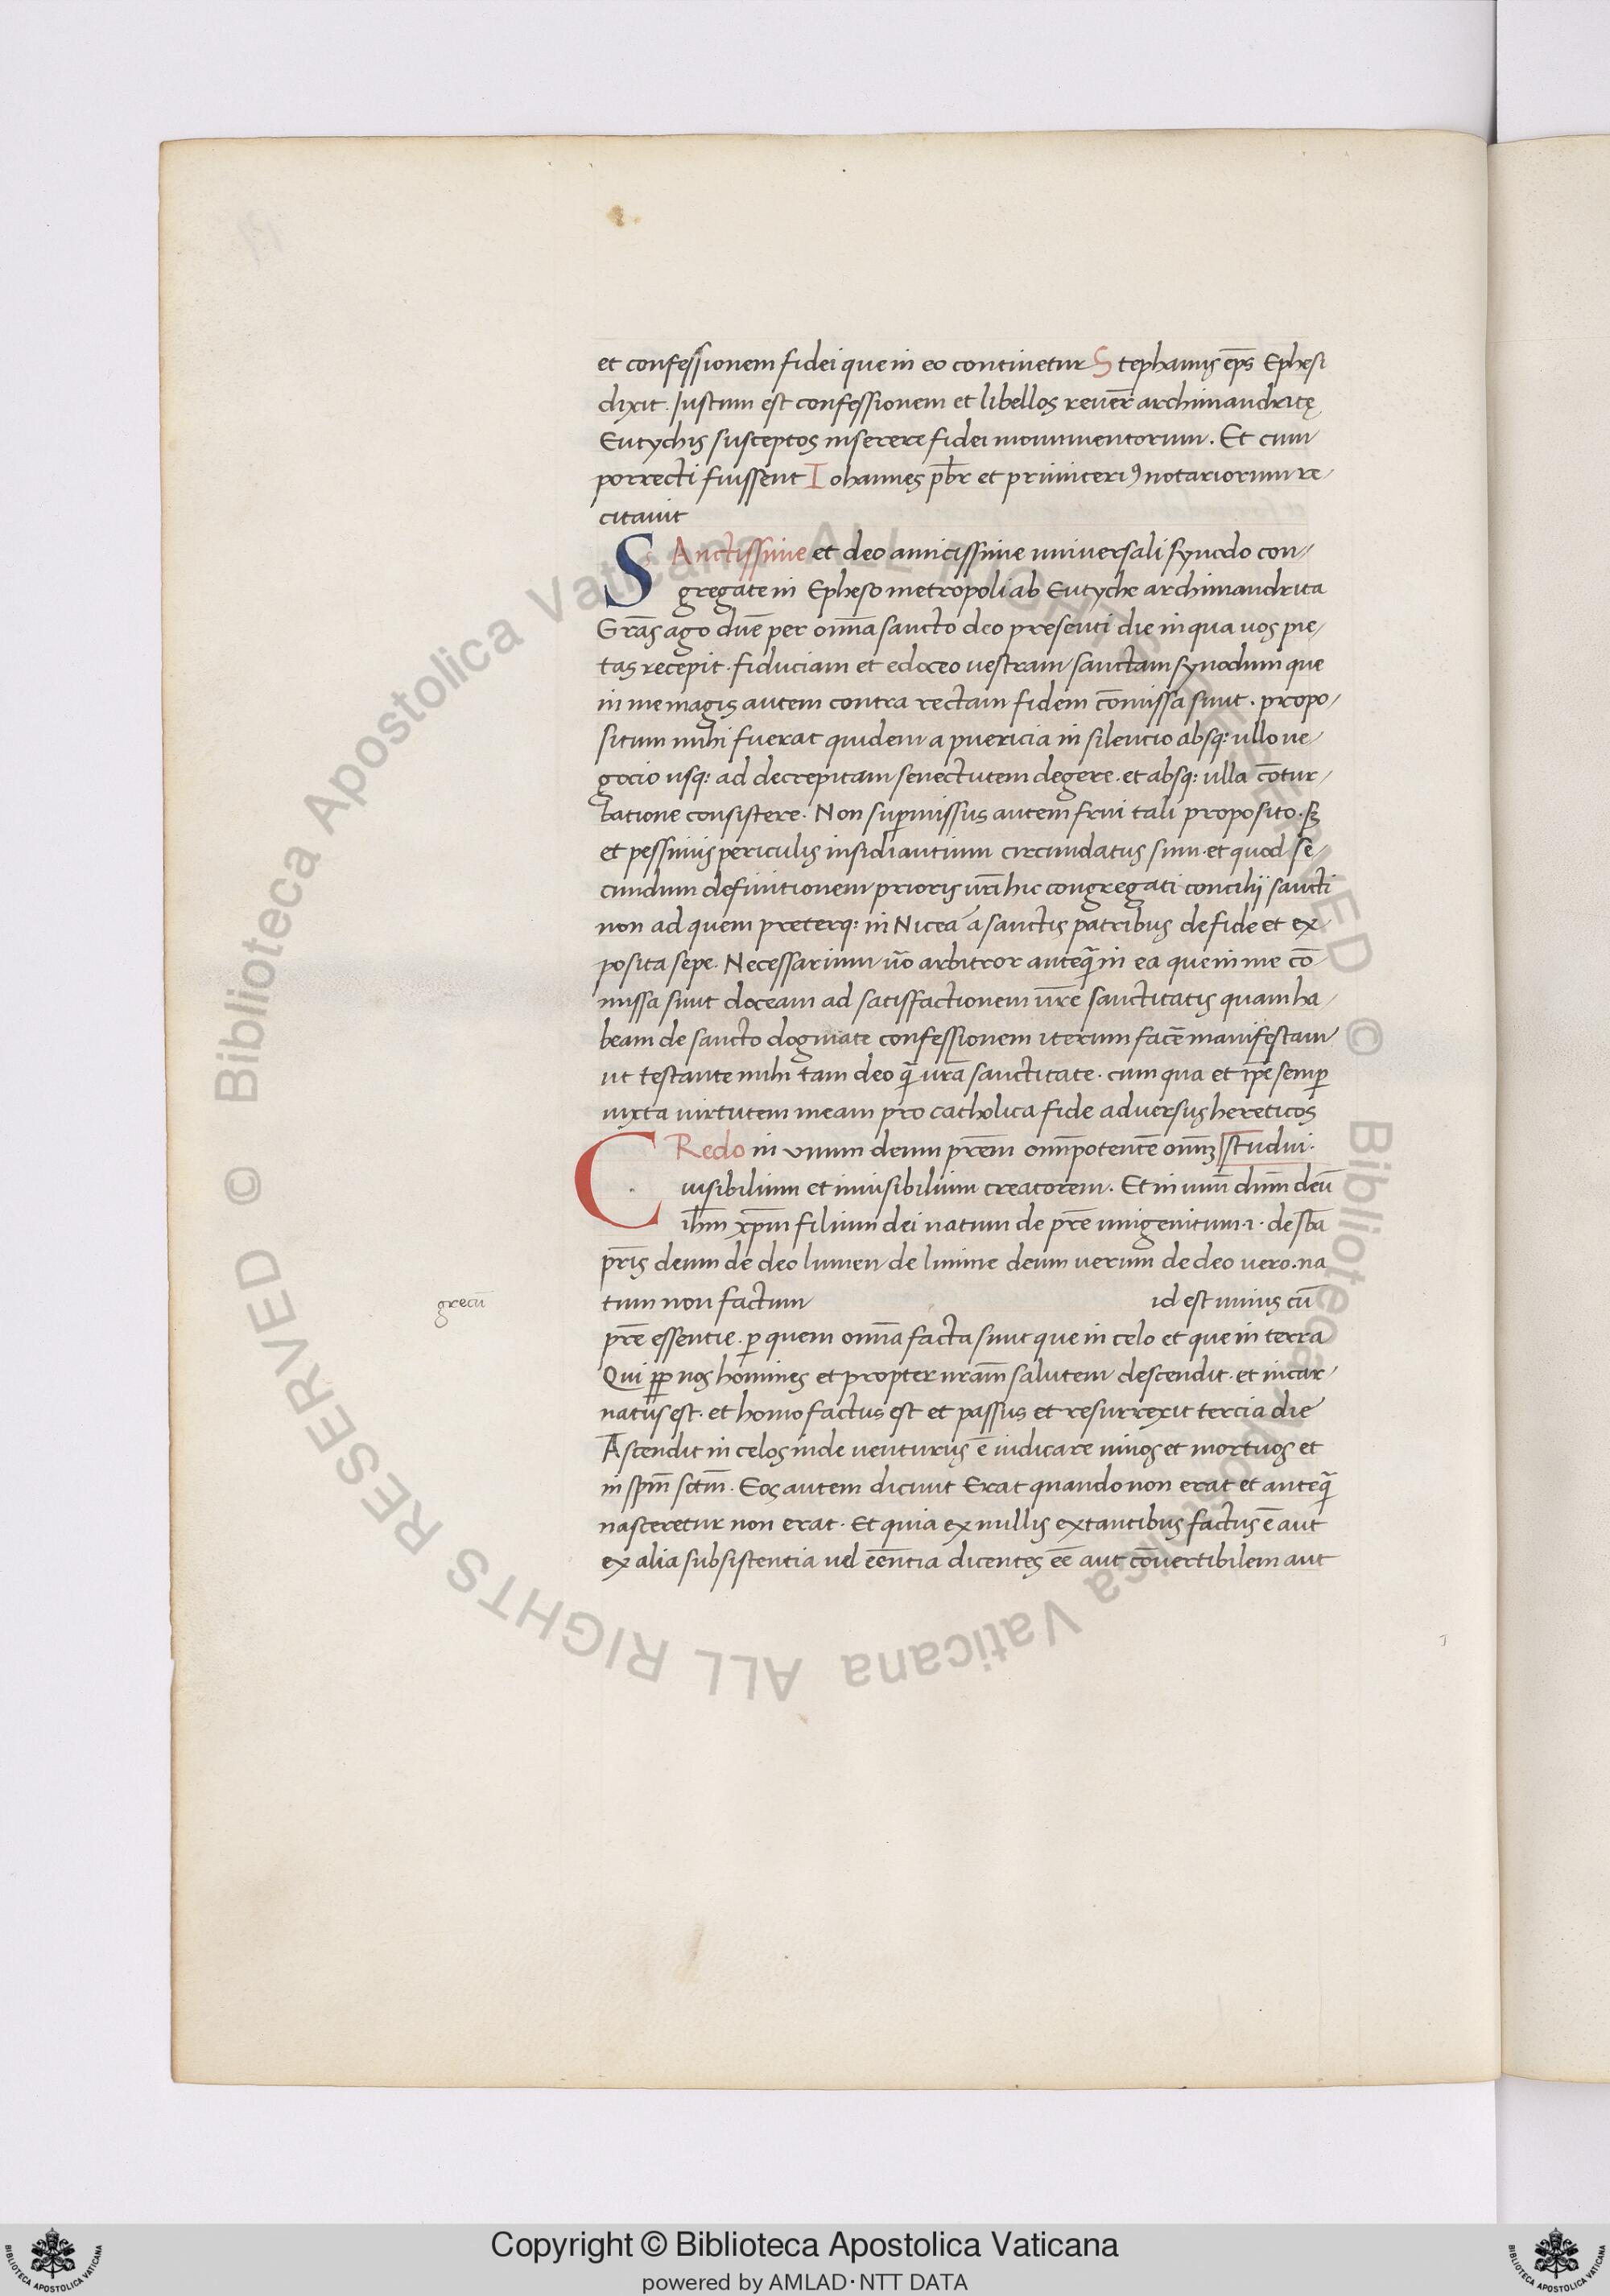 et confessionem fidei que in eo continetur Stephanus ep̄s Ephesi
dixit. Justum est confessionem et libellos reuer̄ archimandritę
Eutychis susceptos inserere fidei monumentorum. Et cum
porrecti fuissent Iohannes pb̄r et primiceriꝰ notariorum re-
citauit
SAnctissime et deo amicissime universali synodo con-
gregate in Epheso metropoli ab Eutyche archimandrita
Grās ago duē per om̄a sancto deo presenti die in qua uos pie-
tas recepit. fiduciam et edoceo uestram sanctam synodum que
in me magis autem contra rectam fidem cōmissa sunt. propo-
situm mihi fuerat quidem a puericia in silencio absq: ullo ne-
gocio usq: ad decrepitam senectutem degere. et absq: ulla cōtur-
batione consistere. Non suꝑmissus autem frui tali proposito. sꝫ
et pessimis periculis insidiantium circundatus sum. et quod se-
cundum definitionem prioris ūri hic congregati concilii sancti
non ad quem preterq: in Nicea a sanctis patribus de fide et ex-
posita sepe. Necessarium ūo arbitror anteq̄ in ea que in me cō-
missa sunt doceam ad satisfactionem ūre sanctitatis quam ha-
beam de sancto dogmate confessionem iterum facē manifestam
ut testante mihi tam deo q̄ ura sanctitate. cum qua et ip̄e semꝑ
iuxta uirtutem meam pro catholica fide adversus hereticos
CRedo in vnum deum prēm om̄potentē om̄ꝫ studui.
uisibilium et inuisibilium creatorem. Et in unū dn̄m deū
ih̄m xp̄m filium dei natum de prē unigenitum .i. de sb̄a
pr̄is deum de deo lumen de lumine deum uerum de deo uero. na
tum non factum id est unius cū
grecū
prē essentie. ꝑ quem om̄a facta sunt que in celo et que in terra
Qui ꝓp nos homines et propter nram̄ salutem descendit. et incar-
natus est. et homo factus est et passus et resurrexit tercia die
Ascendit in celos inde uenturus ē iudicare uiuos et mortuos et
in spm̄ sctm̄. Eos autem dicunt Erat quando non erat et anteq̄
nasceretur non erat. Et quia ex nullis extantibus factus ē aut
ex alia subsistentia uel eēntia dicentes eē aut cōvertibilem aut
© Biblioteca Apostolica Vaticana ALL RIGHTS RESERVED © Biblioteca Apostolica Vaticana ALL RIGHTS RESERVED
Copyright © Biblioteca Apostolica Vaticana
powered by AMLAD·NTT DATA
BIBLIOTECA APOSTOLICA VATICANA
BIBLIOTECA APOSTOLICA VATICANA